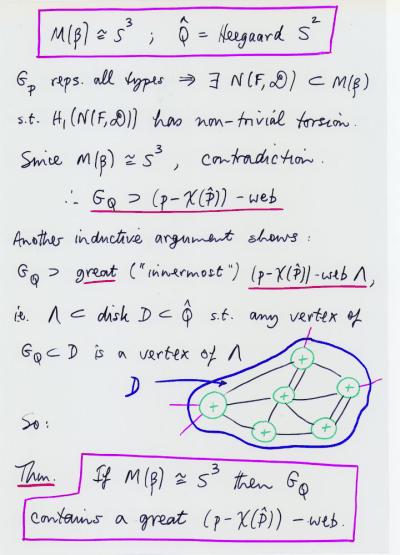 M(β) ≅ S³ ; Q̂ = Heegaard S²
G_P reps. all types ⇒ ∃ N(F,𝒟) ⊂ M(β)
s.t. H₁(N(F,𝒟)) has non-trivial torsion.
Since M(β) ≅ S³, contradiction.
∴ G_Q ⊃ (p-χ(P̂))-web
Another inductive argument shows:
G_Q ⊃ great ("innermost") (p-χ(P̂))-web Λ,
i.e. Λ ⊂ disk D ⊂ Q̂ s.t. any vertex of
G_Q ⊂ D is a vertex of Λ
D
+ + + + + +
So:
Thm. If M(β) ≅ S³ then G_Q
contains a great (p-χ(P̂))-web.